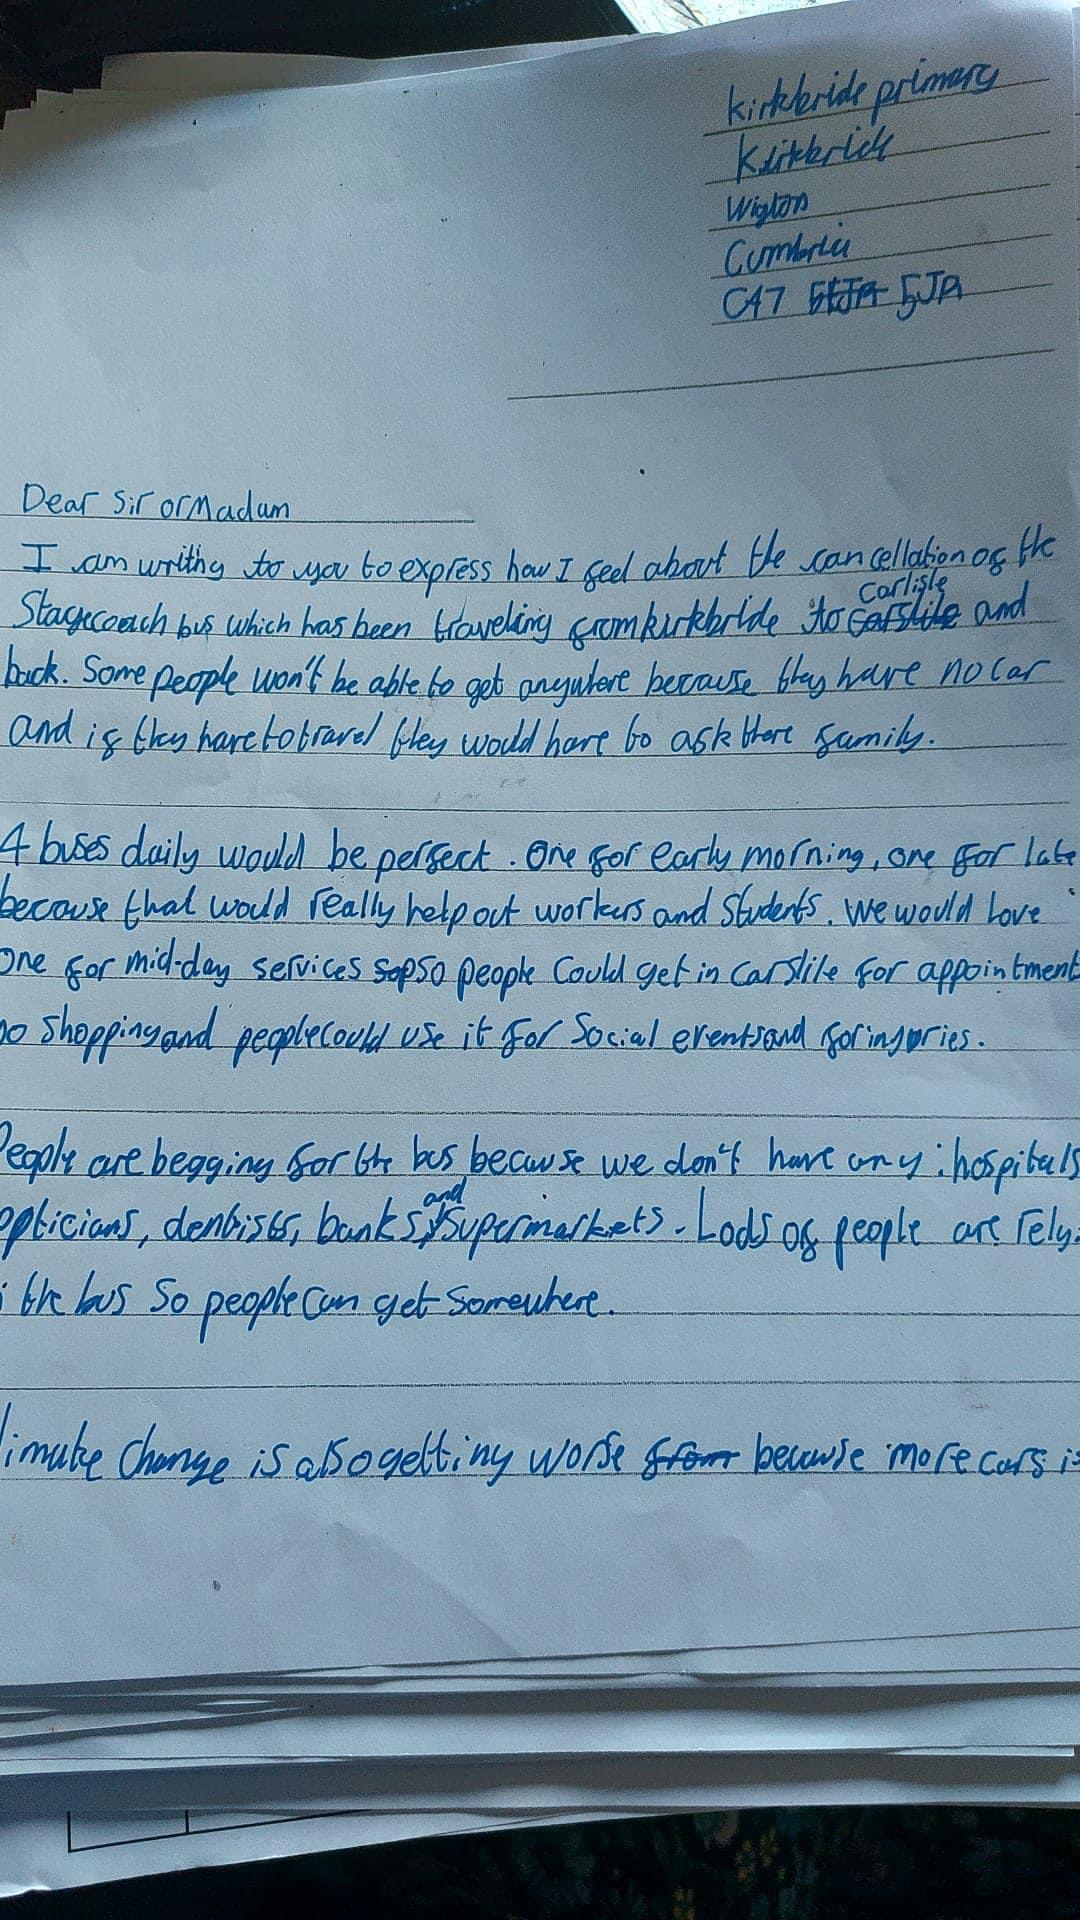 Kirkbride primary
Kirkbride
Wigton
Cumbria
CA7 5JA
Dear Sir or Madam
I am writing to you to express how I feel about the cancellation of the
Stagecoach bus which has been traveling from kirkbride to Carlisle and
back. Some people won't be able to get anywhere because they have no car
and if they have to travel they would have to ask there family.
4 buses daily would be perfect. One for early morning, one for late
because that would really help out workers and students. We would love
One for mid-day services so people Could get in Carslile for appointment
shopping and people could use it for Social events and for ingories.
People are begging for the bus because we don't have any: hospitals
opticians, dentists, banks, and supermarkets. Lods of people are rely
the bus So people can get Somewhere.
limate Change is also getting worse because more cars is